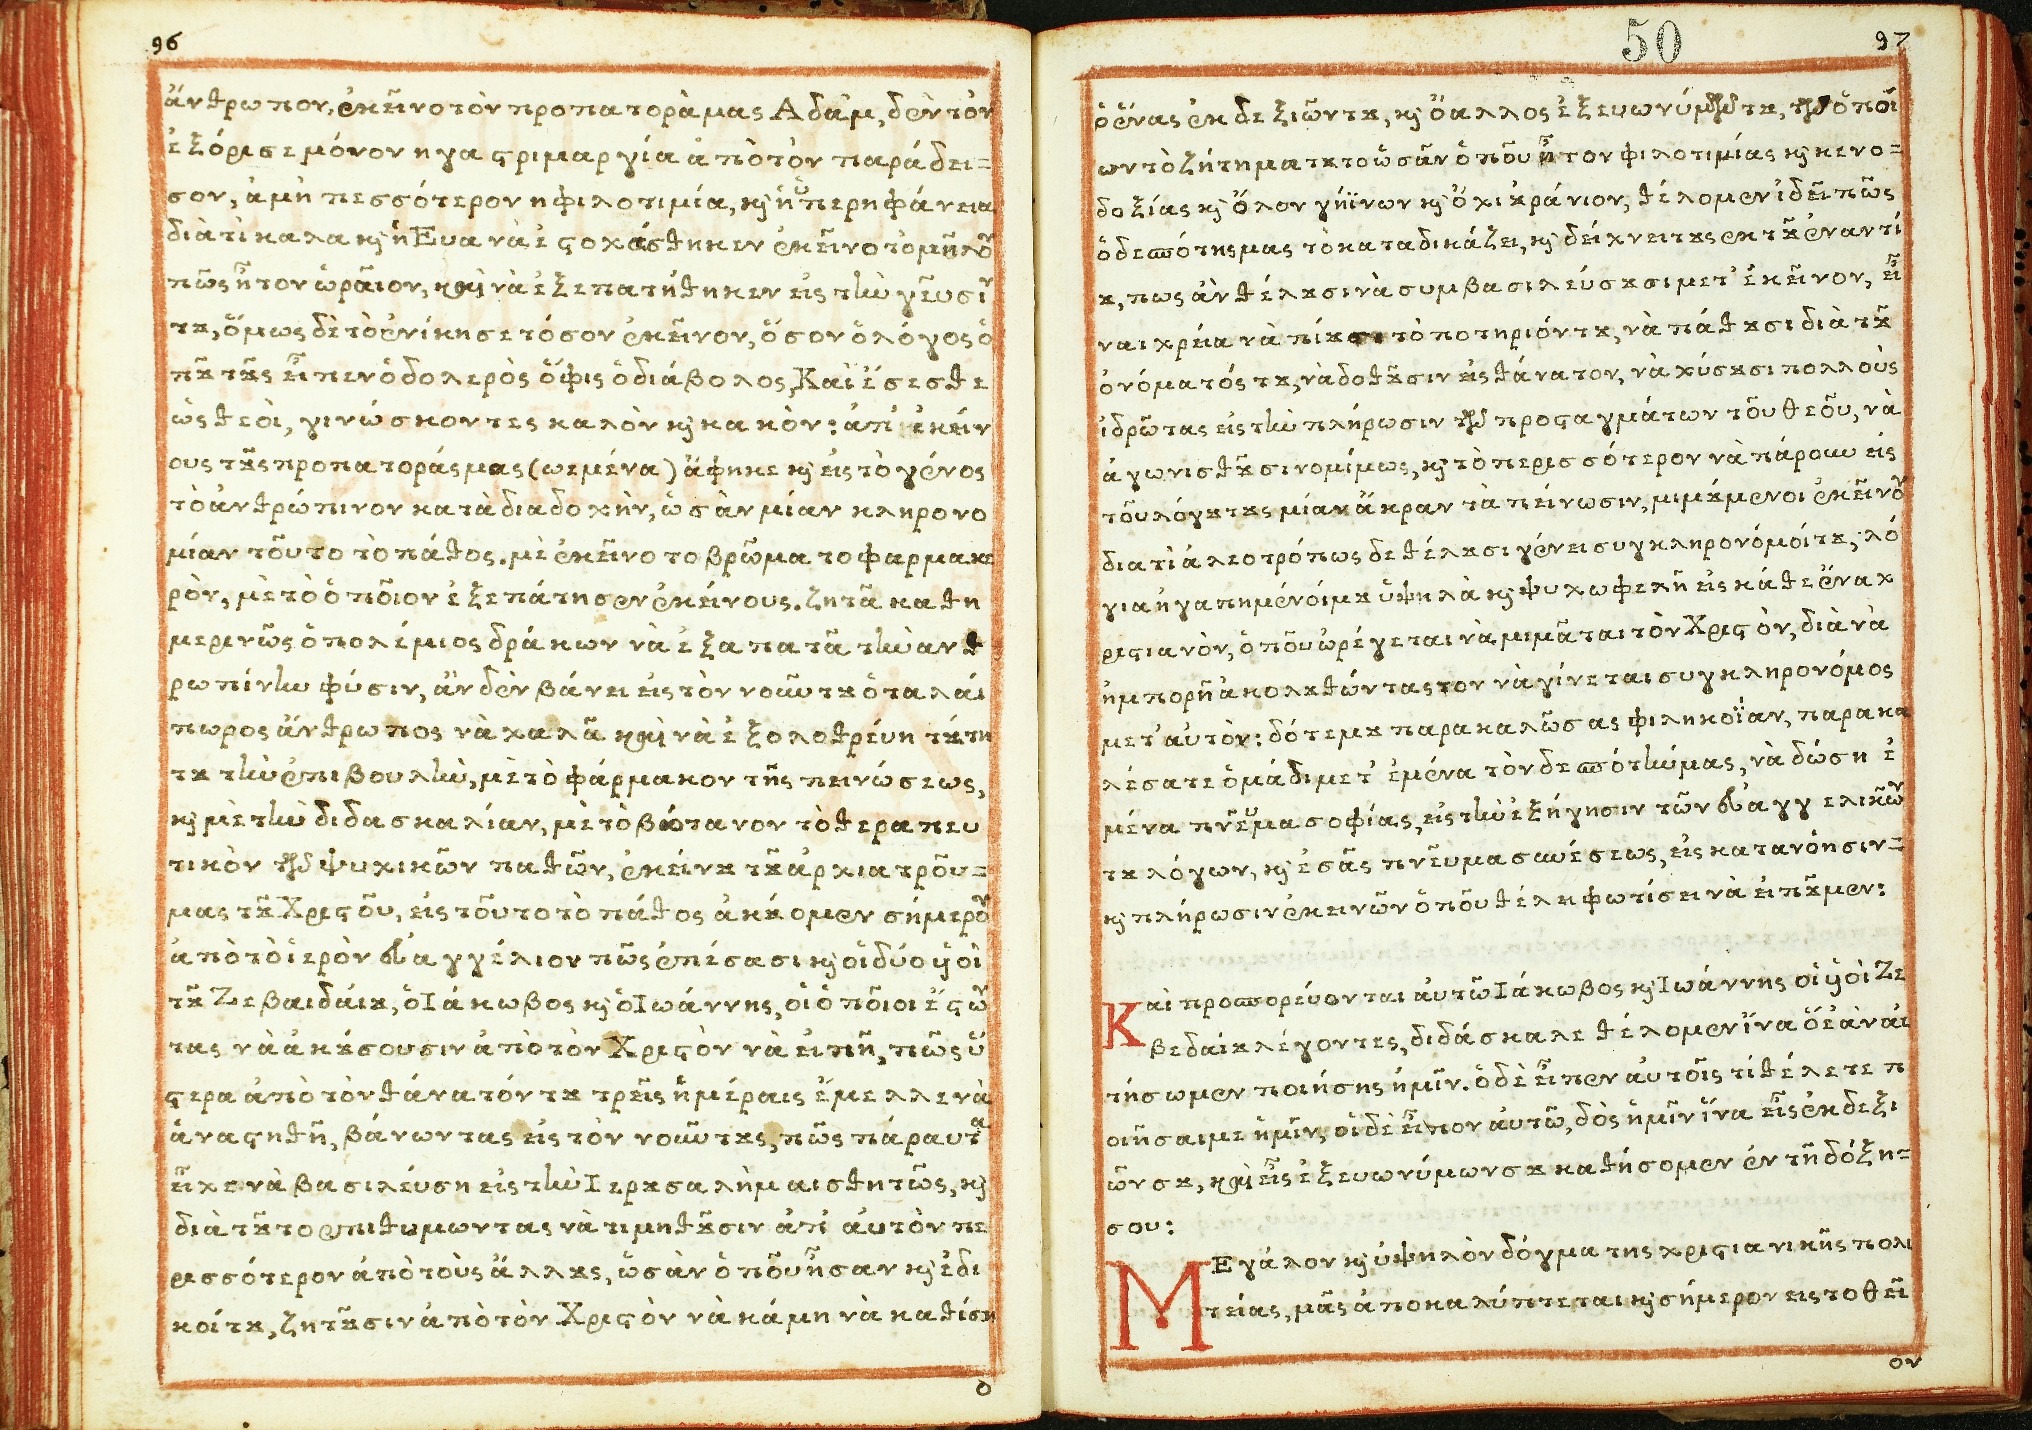 96
ἄνθρωπον, ἐκεῖνο τὸν προπατορὰ μας Ἀδάμ, δὲν τὸν
ἐξόρισε μόνον η γαστριμαργία ἀπὸ τὸν παράδει=
σον, ἀμὴ πεσσότερον η φιλοτιμία, κ̀ ἡ ὑπερηφάνεια
διὰ τὶ καλα κ̀ ἡ Ἐυα νὰ ἐστοχάσθηκεν ἐκεῖνο τὸ μῆλον
πῶς ἦτον ὡραῖον, καὶ νὰ ἐξεπατήθηκεν εἰς τὴν γεῦσιν
τȣ, ὅμως δὲ τὸ ἐνίκησε τόσον ἐκεῖνον, ὅσον ὁ λόγος ὁ
πȣ̃ τȣ̃ς εἶπεν ὁ δολερὸς ὄφις ὁ διάβολος, Καὶ ἔσεσθε
ὡς θεὸι, γινώσκοντες καλὸν κ̀ κακὸν: ἀπ' ἐκείν
ους τȣ̃ς προπατοράς μας (ωεμένα) ἄφηκε κ̀ εἰς τὸ γένος
τὸ ἀνθρώπινον κατὰ διαδοχὴν, ὡσὰν μίαν κληρονο
μίαν τοῦτο τὸ πάθος. μὲ ἐκεῖνο το βρῶμα το φαρμακε
ρὸν, μὲ τὸ ὁποῖον ἐξεπάτησεν ἐκείνους. ζητᾶ καθη
μερινῶς ὁ πολέμιος δράκων νὰ ἐξαπατᾶ τὴν ανθ
ρωπίνην φύσιν, ἂν δὲν βάνει εἰς τὸν νοῦν τȣ ὁ ταλάι
πωρος ἄνθρωπος νὰ χαλᾶ καὶ νὰ ἐξολοθρέυη τȣ́τη
τȣ τὴν ἐπιβουλὴν, μὲ τὸ φάρμακον τῆς πεινώσεως,
κ̀ μὲ τὴν διδασκαλίαν, μὲ τὸ βότανον τὸ θεραπευ
τικὸν τῶν ψυχικῶν παθῶν, ἐκείνȣ τȣ̃ ἀρχιατροῦ=
μας τȣ̃ Χριστοῦ, εἰς τοῦτο τὸ πάθος ἀκȣ́ομεν σήμερον
ἀπὸ τὸ ἱερὸν ἐυαγγέλιον πῶς ἐπέσασι κ̀ οἱ δύο ὑιοὶ
τȣ̃ Ζεβαιδάιȣ, ὁ Ἰάκωβος κ̀ ὁ Ἰωάννης, οἱ ὁποῖοι ἔστων
τας νὰ ἀκȣ́σουσιν ἀπὸ τὸν Χριστὸν νὰ ἐιπῆ, πῶς ὕ
στερα ἀπὸ τὸν θάνατόν τȣ τρεῖς ἡμέραις ἔμελλε νὰ
ἀναστηθῆ, βάνωντας εἰς τὸν νοῦν τȣς, πῶς πάραυτα
εἶχε νὰ βασιλέυση εἰς τὴν Ἱερȣσαλὴμ αισθητῶς, κ̀
διὰ τȣ̃το επιθυμωντας νὰ τιμηθȣ̃σιν ἀπ' ἀυτὸν πε
ρισσότερον ἀπὸ τοὺς ἄλλȣς, ὡσὰν ὁποῦ ἦσαν κ̀ ἐδι
κοί τȣ, ζητȣ̃σιν ἀπὸ τὸν Χριστὸν νὰ κάμη νὰ καθίση
ὁ
50
97
ὁ ἕνας ἐκ δεξιῶν τȣ, κ̀ ὁ αλλος ἐξ ευωνύμων τȣ, τῶν ὁποῖ
ων τὸ ζήτημα τȣτο ὡσὰν ὁποῦ ἦτον φιλοτιμίας κ̀ κενο=
δοξίας κ̀ ὅλον γήϊνων κ̀ ὄχι ȣράνιον, θέλομεν ἰδεῖ πῶς
ὁ δεσπότης μας τὸ καταδικάζει, κ̀ δείχνει τȣς ἐκ τȣ̃ ἐναντί
ȣ, πως ἀν θέλȣσι νὰ συμβασιλεύσȣσι μετ' ἐκεῖνον, εἶ
ναι χρέια νὰ πίȣσι τὸ ποτηριόν τȣ, νὰ πάθȣσι διὰ τȣ̃
ὀνόματός τȣ, νὰ δοθȣ̃σιν εἰς θάνατον, νὰ χύσȣσι πολλοὺς
ἱδρῶτας εἰς τὴν πλήρωσιν τῶν προσταγμάτων τοῦ θεοῦ, νὰ
ἀγωνισθȣ̃σι νομίμως, κ̀ τὸ περισσότερον νὰ πάρουν εἰς
τοῦ λόγȣ τȣς μίαν ἄκραν ταπείνωσιν, μιμȣ́μενοι ἐκεῖνον
διατὶ ἀλεοτρόπως δε θέλȣσι γένει συγκληρονόμοί τȣ, λό
για ἠγαπημένοί μȣ ὑψηλὰ κ̀ ψυχωφελῆ εἰς κάθε ἕνα χ
ριστιανὸν, ὁποῦ ὠρέγεται νὰ μιμᾶται τὸν Χριστὸν, διὰ νὰ
ἠμπορῆ ἀκολȣθώντας τον νὰ γίνεται συγκληρονόμος
μετ' αὐτὸν: δότε μȣ παρακαλῶ σας φιληκοΐαν, παρακα
λέσατε ὁμάδι μετ' ἐμένα τὸν δεσπότην μας, νὰ δώση ἐ
μένα πνεῦμα σοφίας, εἰς τὴν ἐξήγησιν τῶν ἐυαγγελικῶν
τȣ λόγων, κ̀ ἐσᾶς πνεῦμα συνέσεως, εἰς κατανόησιν=
κ̀ πλήρωσιν ἐκεινῶν ὁποῦ θέλει φωτίσει νὰ ἐιπȣ̃μεν:
Καὶ προσπορέυονται ἀυτῶ Ἰάκωβος κ̀ Ἰωάννης οἱ ὑιοὶ Ζε
βεδαίȣ λέγοντες, διδάσκαλε θέλομεν ἵνα ὅ ἐὰν ἀι
τήσωμεν ποιήσης ἡμῖν. ὁ δὲ εἶπεν ἀυτοῖς τί θέλετε π
οιῆσαι με ἡμῖν, οἱ δὲ εἶπον ἀυτῶ, δὸς ἡμῖν ἵνα εἷς ἐκ δεξι
ῶν σȣ, καὶ εἷς ἐξ ευωνύμων σȣ καθήσομεν ἐν τῆ δόξη=
σου:
ΜΕγάλον κ̀ ὑψηλὸν δόγμα της χριστιανικῆς πολι
τείας, μᾶς ἀποκαλύπτεται κ̀ σήμερον εις το θεῖ
ον